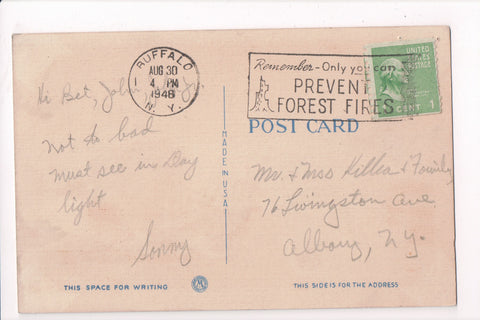 BUFFALO
AUG 30
4 PM
1948
N. Y.
Remember - Only you can
PREVENT
FOREST FIRES
UNITED
STATES
POSTAGE
CENT 1
POST CARD
Hi Bet, John
Not to bad
must see in Day
light
Sonny
MADE IN USA
Mr. & Mrs Killea & Family
76 Livingston Ave
Albany, N.Y.
THIS SPACE FOR WRITING
THIS SIDE IS FOR THE ADDRESS